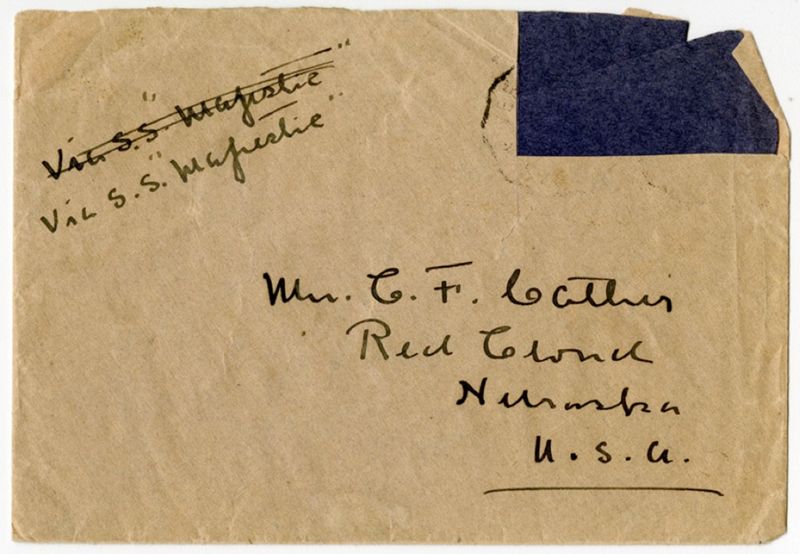 Via S.S. "Majestic"
Via S.S. "Majestic"
Mr. C. F. Cather
Red Cloud
Nebraska
U.S.A.